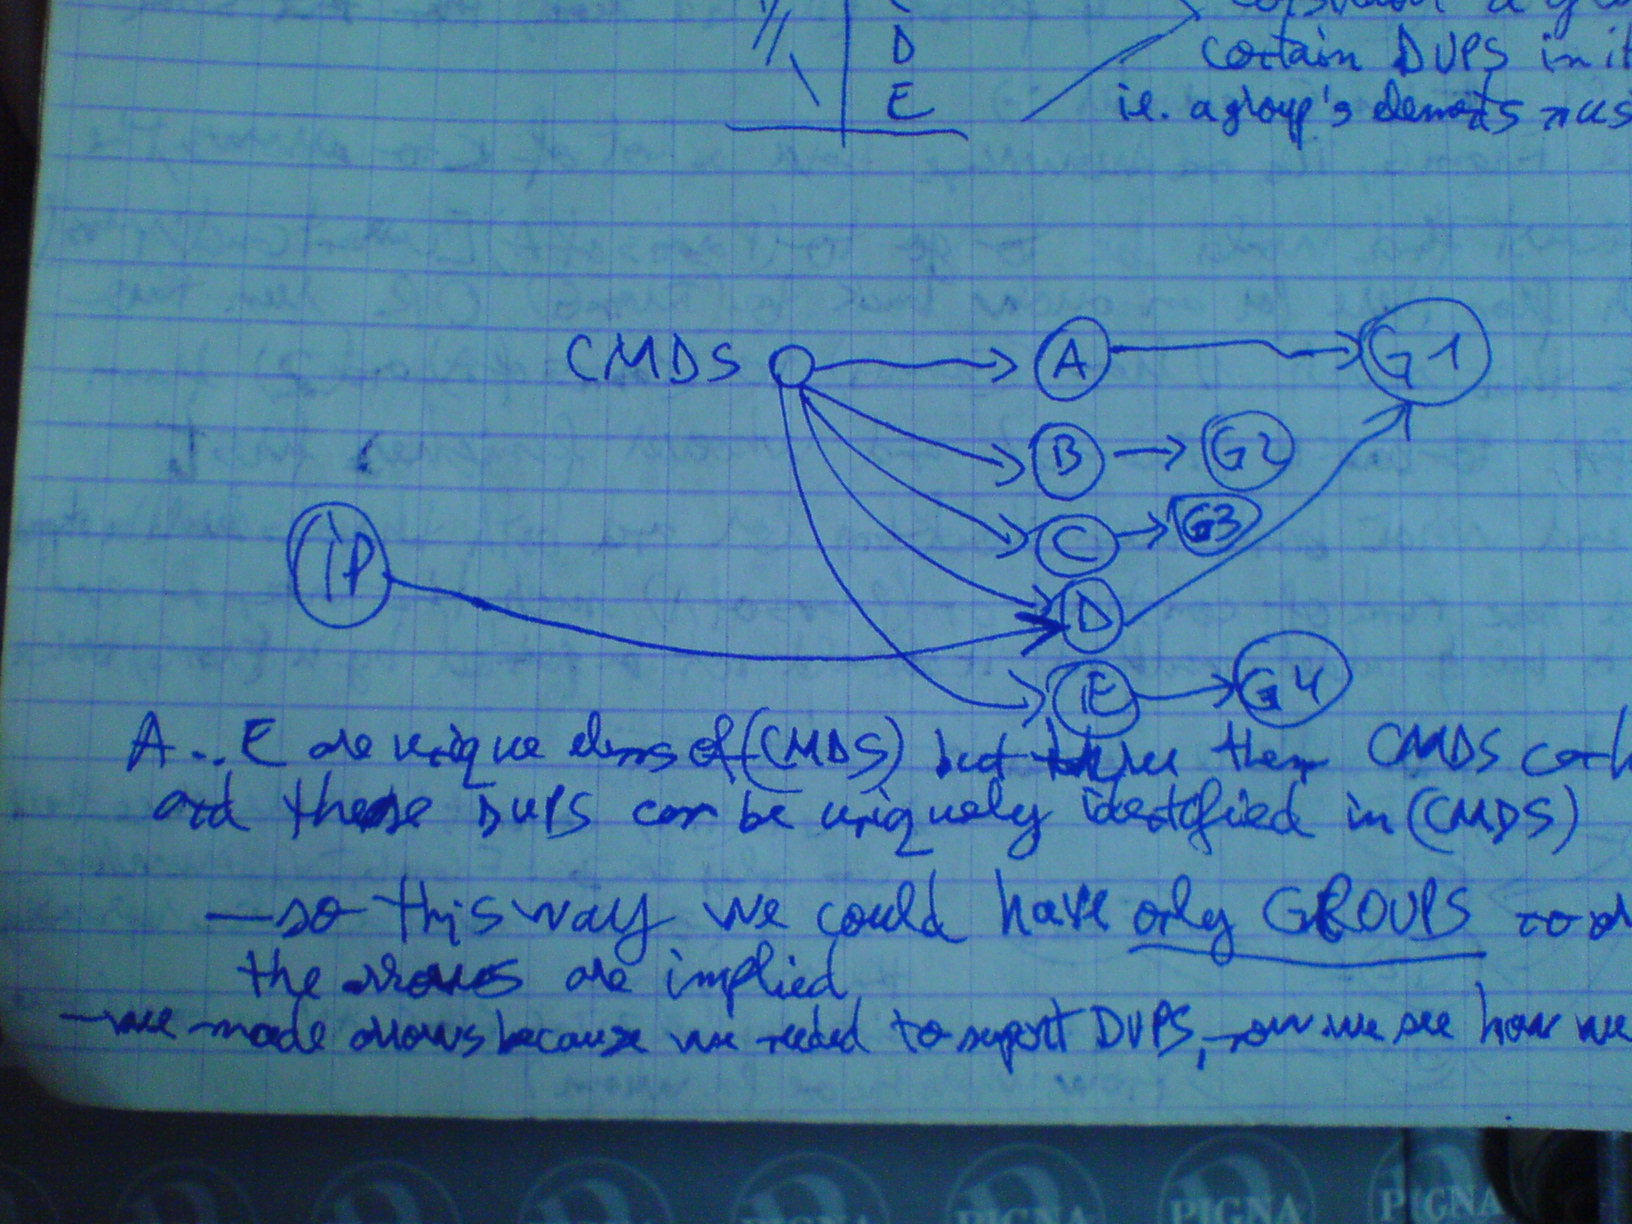 D
certain DUPS in it
E
i.e. a group's elements
CMDS
A
G1
B
G2
C
G3
iP
D
E
G4
A..E are unique elems of (CMDS) but then CMDS
and these DUPS can be uniquely identified in (CMDS)
—so this way we could have only GROUPS
the arrows are implied
—we made arrows because we needed to support DUPS, now we see how we
PIGNA PIGNA PIGNA PIGNA